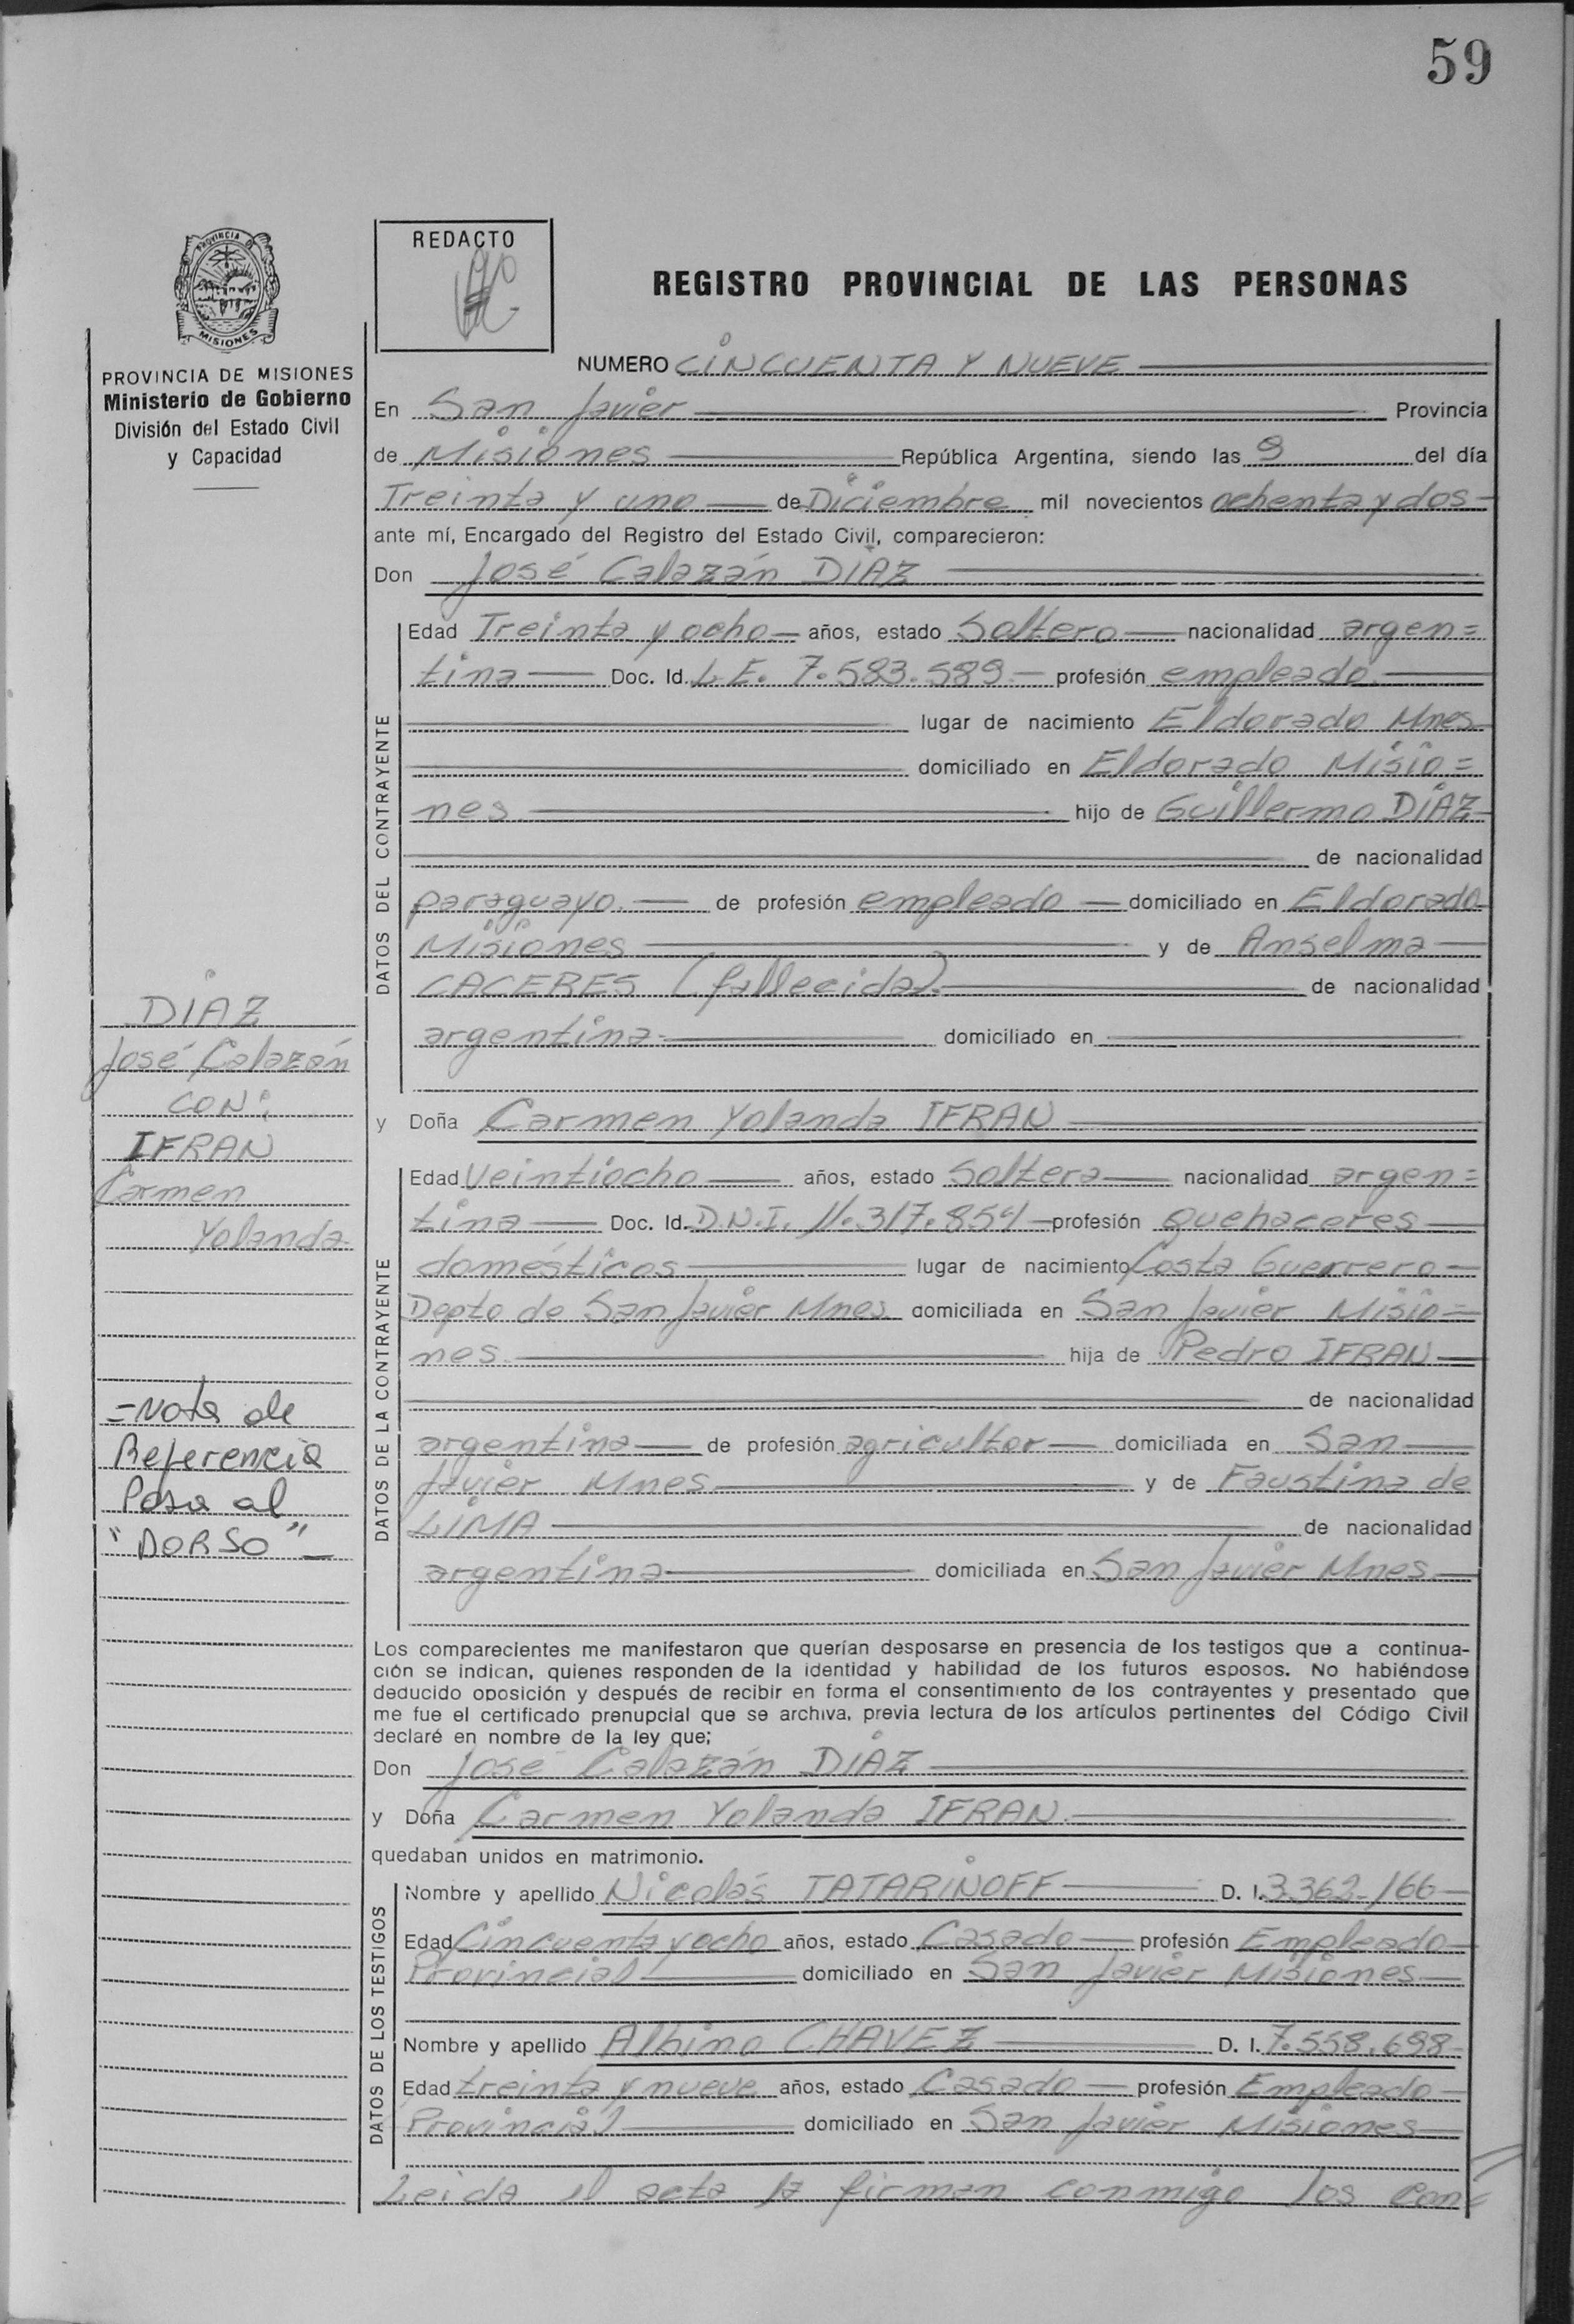 59
PROVINCIA DE
MISIONES
PROVINCIA DE MISIONES
Ministerio de Gobierno
División del Estado Civil
y Capacidad
REDACTO
REGISTRO PROVINCIAL DE LAS PERSONAS
NUMERO CINCUENTA Y NUEVE
En San Javier Provincia
de Misiones República Argentina, siendo las 9 del día
Treinta y uno de Diciembre mil novecientos ochenta y dos
ante mí, Encargado del Registro del Estado Civil, comparecieron:
Don José Calazán DIAZ
DATOS DEL CONTRAYENTE
Edad Treinta y ocho años, estado Soltero nacionalidad argen=
tina Doc. Id. L.E. 7.583.589 profesión empleado
lugar de nacimiento Eldorado Mnes
domiciliado en Eldorado Misio=
nes. hijo de Guillermo DIAZ
de nacionalidad
paraguayo. de profesión empleado domiciliado en Eldorado
Misiones y de Anselma
CACERES (fallecida). de nacionalidad
argentina domiciliado en
y Doña Carmen Yolanda IFRAN
DATOS DE LA CONTRAYENTE
Edad Veintiocho años, estado Soltera nacionalidad argen=
tina Doc. Id. D.N.I. 11.317.854 profesión quehaceres
domésticos lugar de nacimiento Costa Guerrero
Depto de San Javier Mnes domiciliada en San Javier Misio=
nes. hija de Pedro IFRAN
de nacionalidad
argentina de profesión agricultor domiciliada en San
Javier Mnes y de Faustina de
LIMA de nacionalidad
argentina domiciliada en San Javier Mnes
Los comparecientes me manifestaron que querían desposarse en presencia de los testigos que a continua-
ción se indican, quienes responden de la identidad y habilidad de los futuros esposos. No habiéndose
deducido oposición y después de recibir en forma el consentimiento de los contrayentes y presentado que
me fue el certificado prenupcial que se archiva, previa lectura de los artículos pertinentes del Código Civil
declaré en nombre de la ley que;
Don José Calazán DIAZ
y Doña Carmen Yolanda IFRAN
quedaban unidos en matrimonio.
DATOS DE LOS TESTIGOS
Nombre y apellido Nicolás TATARINOFF D. I. 3.362.166
Edad Cincuenta y ocho años, estado Casado profesión Empleado
Provincial domiciliado en San Javier Misiones
Nombre y apellido Albino CHAVEZ D. I. 7.558.698
Edad treinta y nueve años, estado Casado profesión Empleado
Provincial domiciliado en San Javier Misiones
Leida el acta la firman conmigo los con=
DIAZ
José Calazán
CON:
IFRAN
Carmen
Yolanda
=Nota de
Referencia
Pasa al
"DORSO"